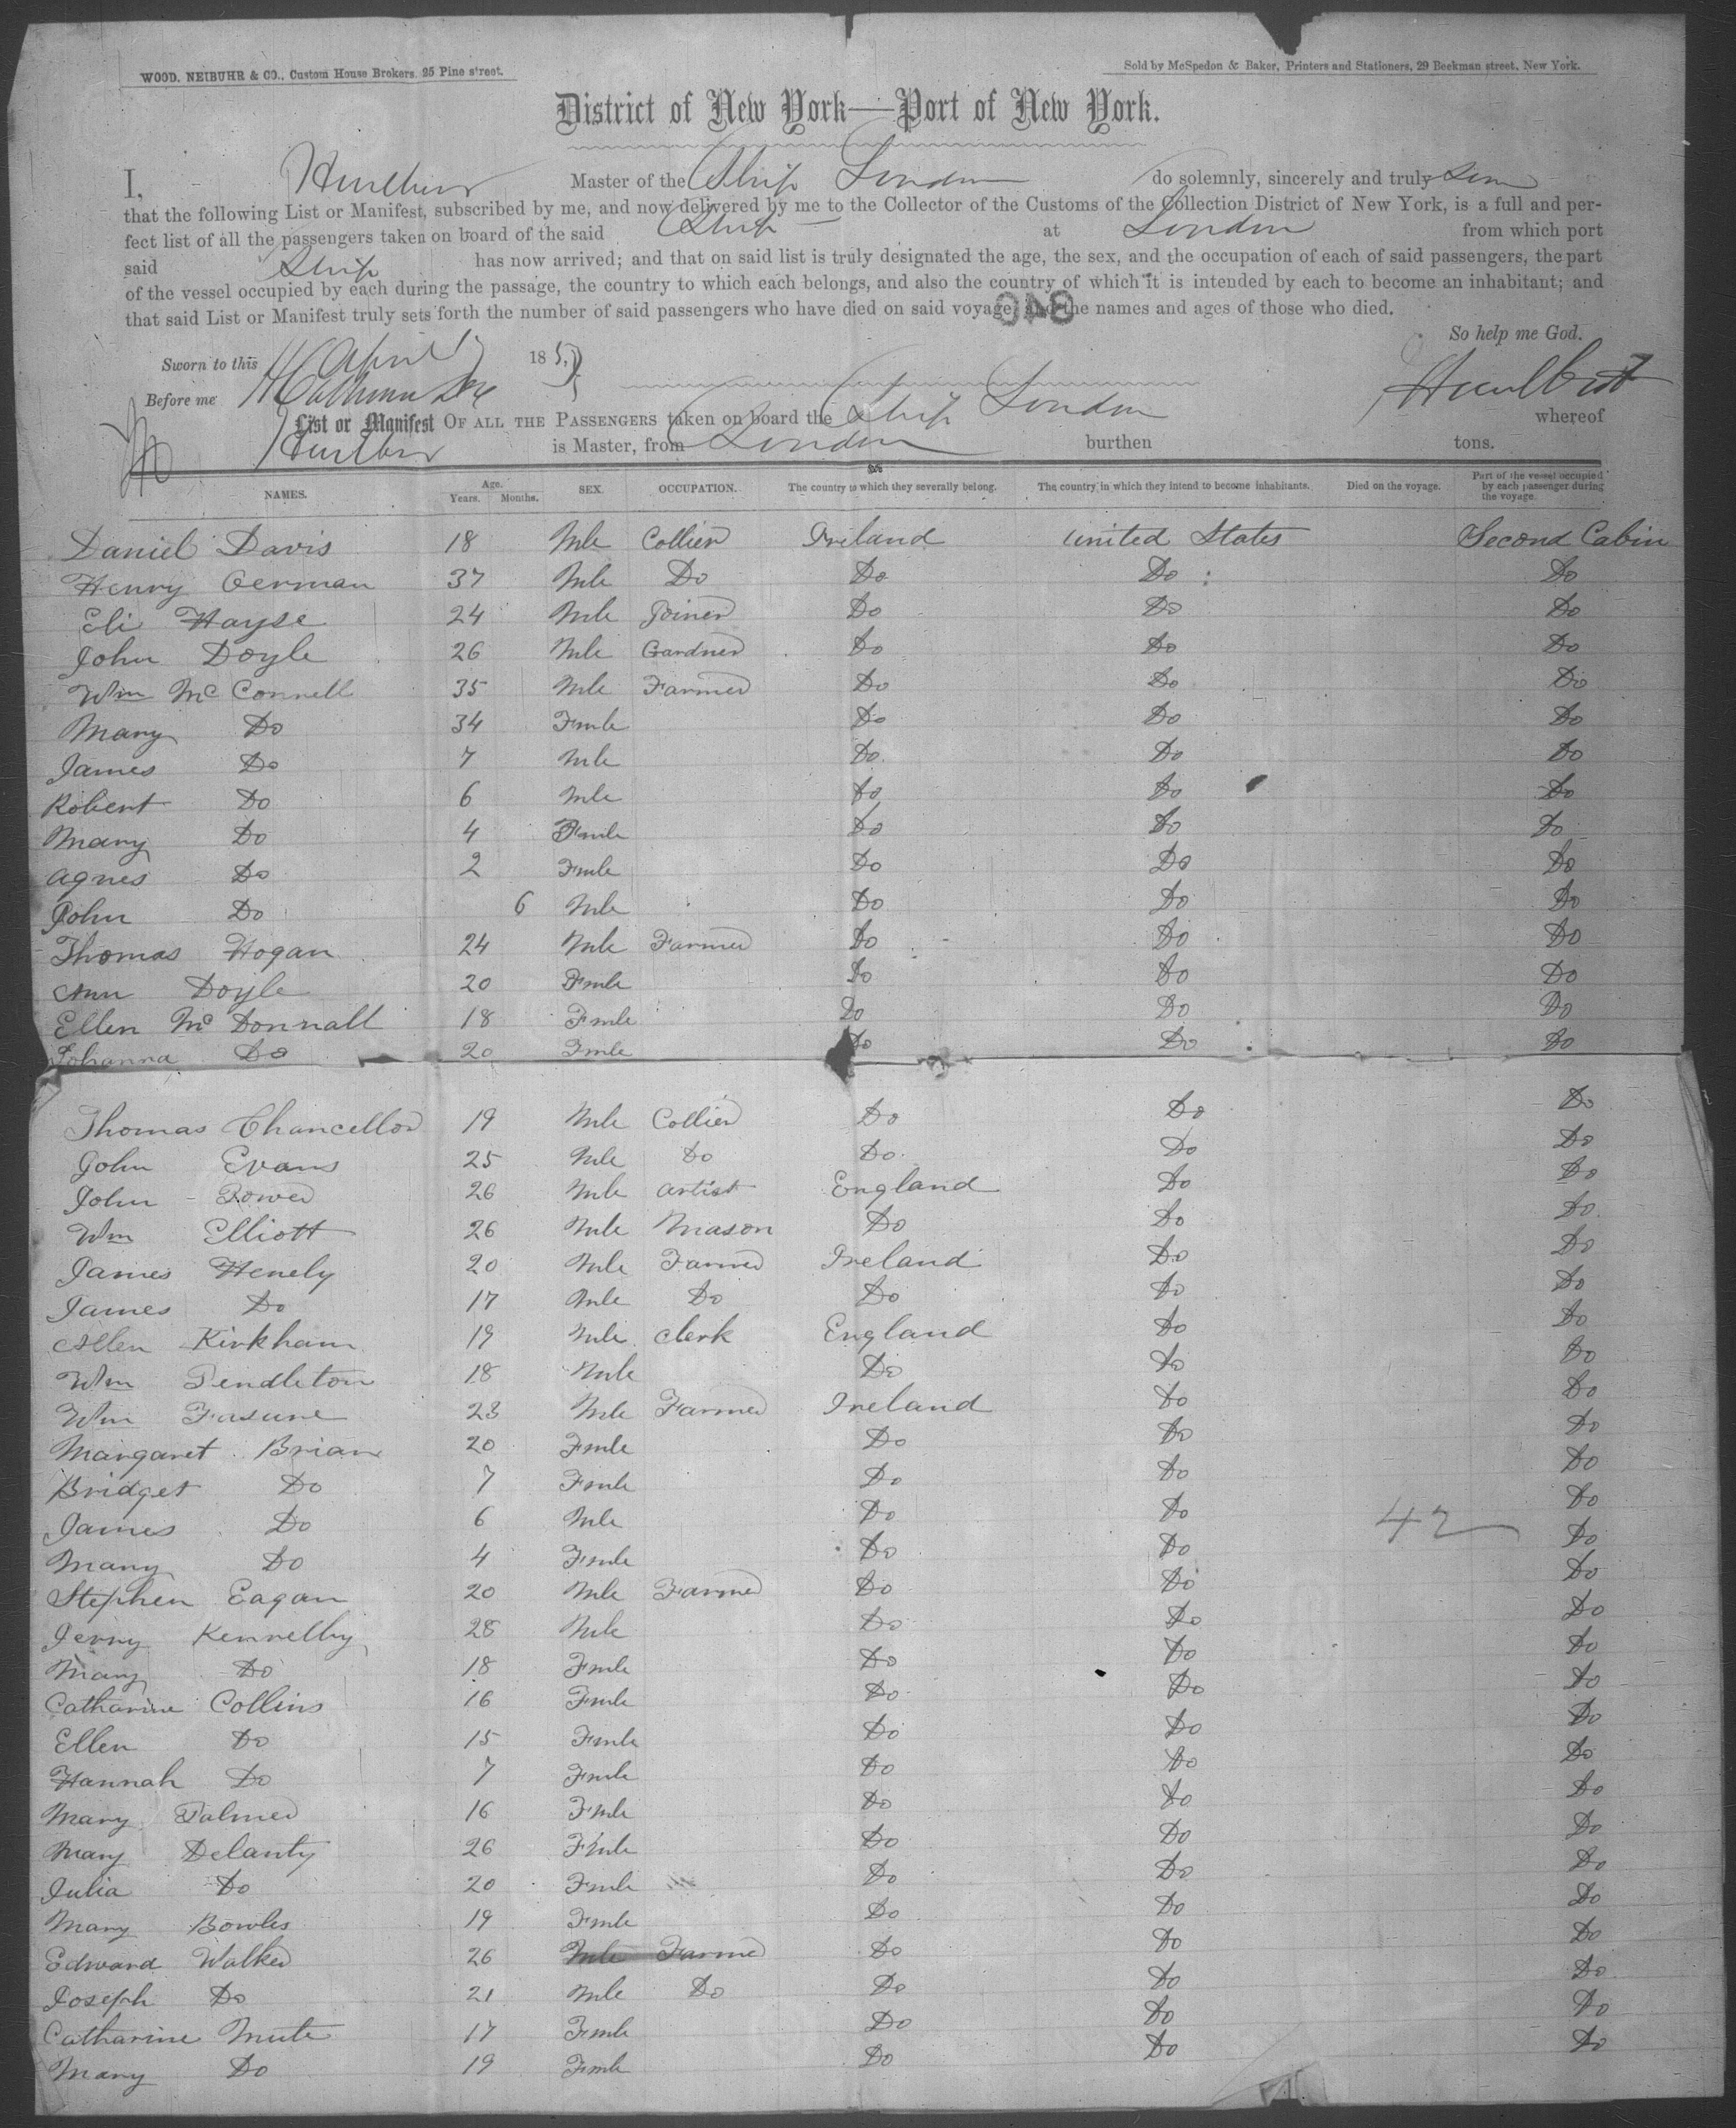 WOOD, NEIBUHR & CO., Custom House Brokers, 25 Pine street.
Sold by McSpedon & Baker, Printers and Stationers, 29 Beekman street, New York.
District of New York—Port of New York.
I, Hurlbut Master of the Ship London do solemnly, sincerely and truly
that the following List or Manifest, subscribed by me, and now delivered by me to the Collector of the Customs of the Collection District of New York, is a full and per-
fect list of all the passengers taken on board of the said Ship at London from which port
said Ship has now arrived; and that on said list is truly designated the age, the sex, and the occupation of each of said passengers, the part
of the vessel occupied by each during the passage, the country to which each belongs, and also the country of which it is intended by each to become an inhabitant; and
that said List or Manifest truly sets forth the number of said passengers who have died on said voyage, and the names and ages of those who died.
So help me God.
Sworn to this April 185
Before me Hurlbut
List or Manifest OF ALL THE PASSENGERS taken on board the Ship London whereof
Hurlbut is Master, from London burthen tons.
NAMES. Age. Years. Months. SEX. OCCUPATION. The country to which they severally belong. The country in which they intend to become inhabitants. Died on the voyage. Part of the vessel occupied by each passenger during the voyage.
Daniel Davis 18 Mle Collier Ireland United States Second Cabin
Henry German 37 Mle Do Do Do Do
Eli Hayse 24 Mle Joiner Do Do Do
John Doyle 26 Mle Gardner Do Do Do
Wm McConnell 35 Mle Farmer Do Do Do
Mary Do 34 Fmle Do Do Do
James Do 7 Mle Do Do Do
Robert Do 6 Mle Do Do Do
Mary Do 4 Fmle Do Do Do
Agnes Do 2 Fmle Do Do Do
John Do 6 Mle Do Do Do
Thomas Hogan 24 Mle Farmer Do Do Do
Ann Doyle 20 Fmle Do Do Do
Ellen McDonnall 18 Fmle Do Do Do
Johanna Do 20 Fmle Do Do Do
Thomas Chancellor 19 Mle Collier Do Do Do
John Evans 25 Mle Do Do Do Do
John Power 26 Mle Artist England Do Do
Wm Elliott 26 Mle Mason Do Do Do
James Henely 20 Mle Farmer Ireland Do Do
James Do 17 Mle Do Do Do Do
Allen Kirkham 19 Mle Clerk England Do Do
Wm Pendleton 18 Mle Do Do Do
Wm Fasune 23 Mle Farmer Ireland Do Do
Margaret Brian 20 Fmle Do Do Do
Bridget Do 7 Fmle Do Do Do
James Do 6 Mle Do Do 42 Do
Mary Do 4 Fmle Do Do Do
Stephen Eagan 20 Mle Farmer Do Do Do
Jerry Kennelly 28 Mle Do Do Do
Mary Do 18 Fmle Do Do Do
Catharine Collins 16 Fmle Do Do Do
Ellen Do 15 Fmle Do Do Do
Hannah Do 7 Fmle Do Do Do
Mary Palmer 16 Fmle Do Do Do
Mary Delanty 26 Fmle Do Do Do
Julia Do 20 Fmle Do Do Do
Mary Bowles 19 Fmle Do Do Do
Edward Walker 26 Mle Farmer Do Do Do
Joseph Do 21 Mle Do Do Do Do
Catharine Mute 17 Fmle Do Do Do
Mary Do 19 Fmle Do Do Do